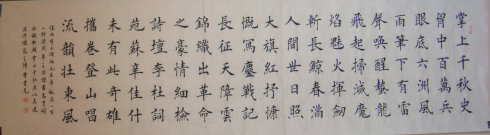 掌上千秋史
胷中百萬兵
眼底六洲風
雨筆下有雷
聲喚醒蟄龍
飛起掃滅魔
焰魅火揮劍
斬長鯨春滿
人間世日照
大旗紅抒慷
慨寫鏖戰記
長征天障雲
錦織出革命
之豪情細檢
詩壇李杜詞
苑蘇辛佳什
未有此奇雄
攜卷登山唱
流韻壯東風